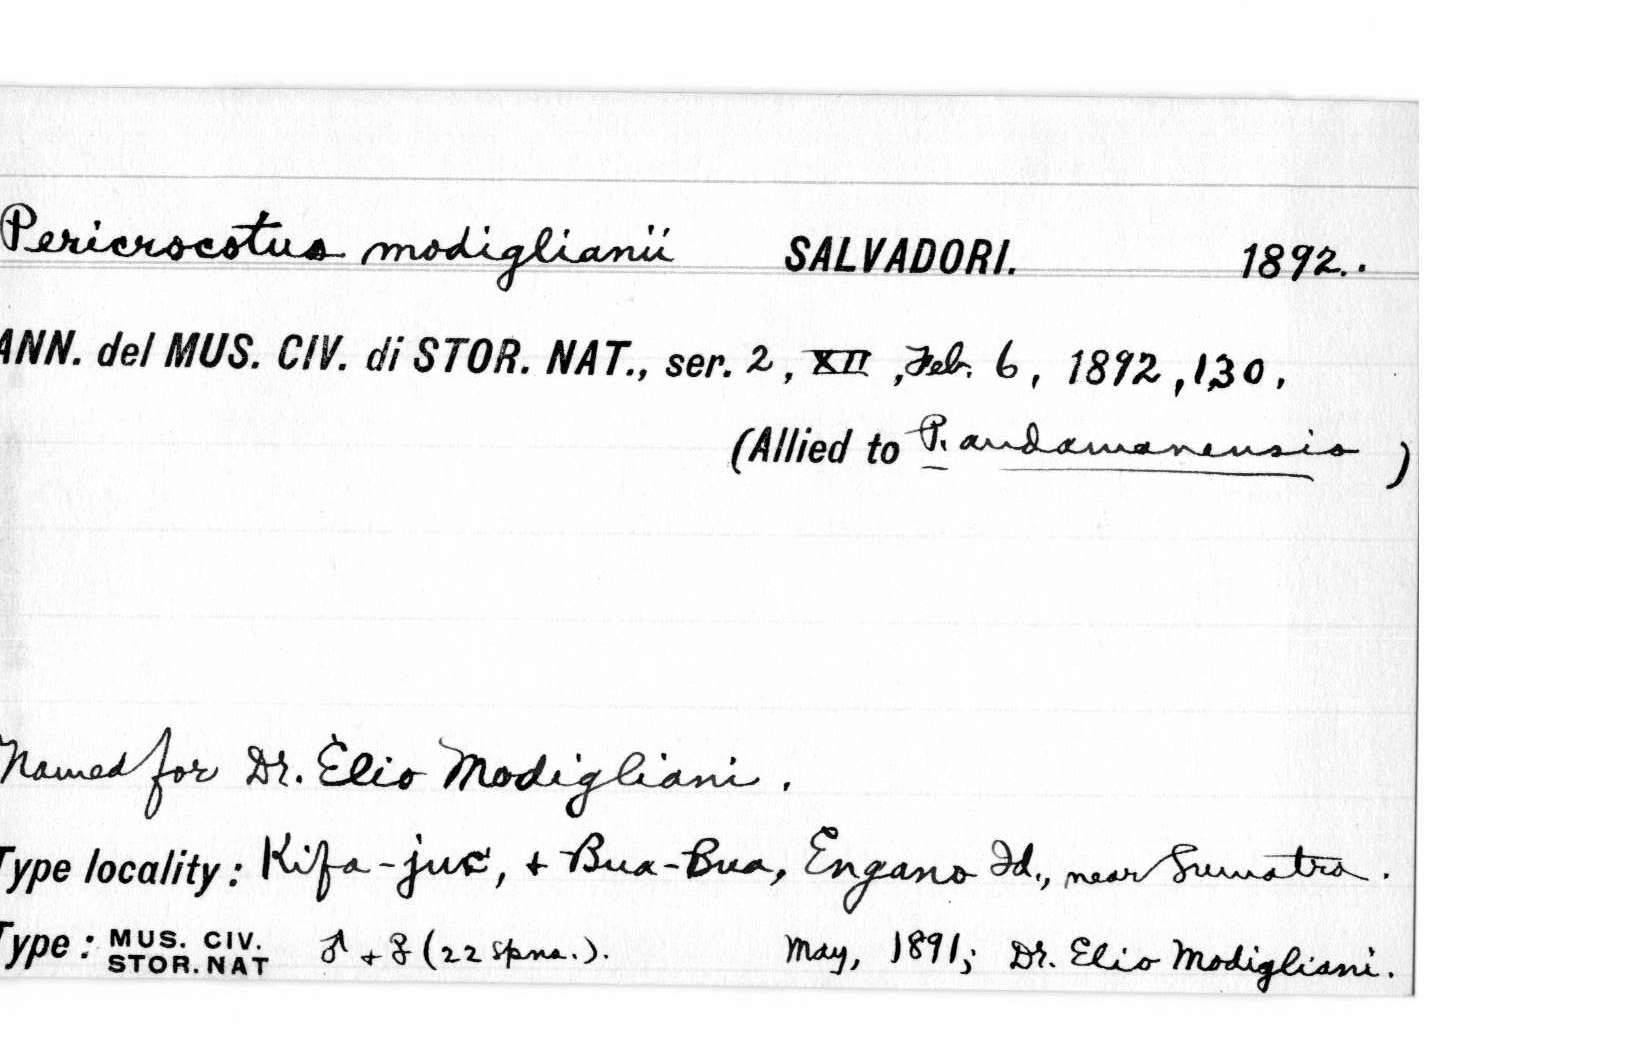 Pericrocotus modiglianii SALVADORI. 1892..
ANN. del MUS. CIV. di STOR. NAT., ser. 2, XII, Feb. 6, 1892, 130.
(Allied to P. andamanensis )
Named for Dr. Elio Modigliani.
Type locality: Kifa-juc, + Bua-Bua, Engano Id., near Sumatra.
Type: MUS. CIV. STOR. NAT ♂ + ♀ (22 spns.). May, 1891; Dr. Elio Modigliani.